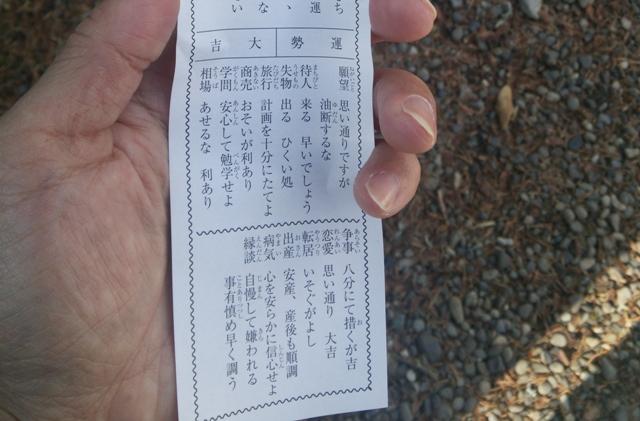 ち
運
、
な
い
運勢 大吉
願望 思い通りですが
油断するな
待人 来る 早いでしょう
失物 出る ひくい処
旅行 計画を十分にたてよ
商売 おそいが利あり
学問 安心して勉学せよ
相場 あせるな 利あり
争事 八分にて措くが吉
恋愛 思い通り 大吉
転居 いそぐがよし
出産 安産、産後も順調
病気 心を安らかに信心せよ
縁談 自慢して嫌われる
事有慎め早く調う